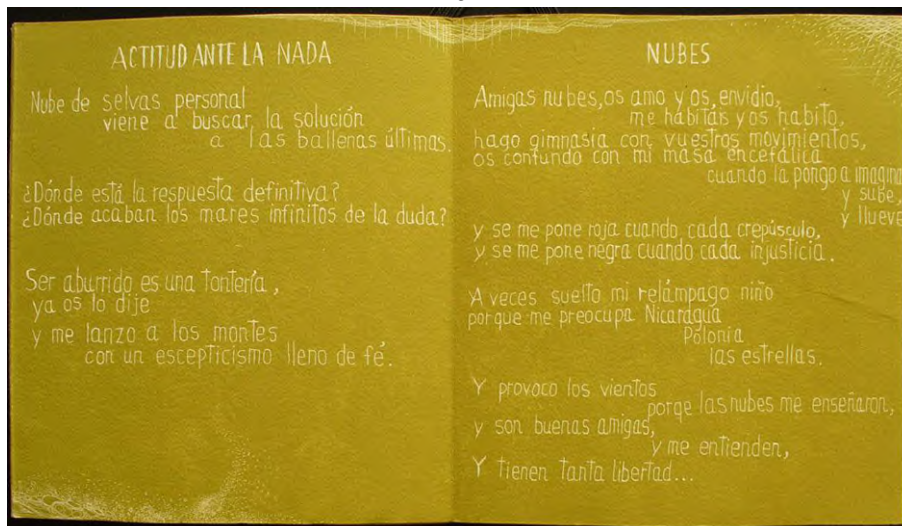 ACTITUD ANTE LA NADA
Nube de selvas personal
viene a buscar la solución
a las ballenas últimas.
¿Dónde está la respuesta definitiva?
¿Dónde acaban los mares infinitos de la duda?
Ser aburrido es una tontería,
ya os lo dije
y me lanzo a los montes
con un escepticismo lleno de fé.
NUBES
Amigas nubes, os amo y os envidio,
me habitáis y os habito,
hago gimnasia con vuestros movimientos,
os confundo con mi masa encefálica
cuando la pongo a imagina
y sube,
y llueve
y se me pone roja cuando cada crepúsculo,
y se me pone negra cuando cada injusticia.
A veces suelto mi relámpago niño
porque me preocupa Nicaragua
Polonia
las estrellas.
Y provoco los vientos
porqe las nubes me enseñaron,
y son buenas amigas,
y me entienden,
Y tienen tanta libertad...